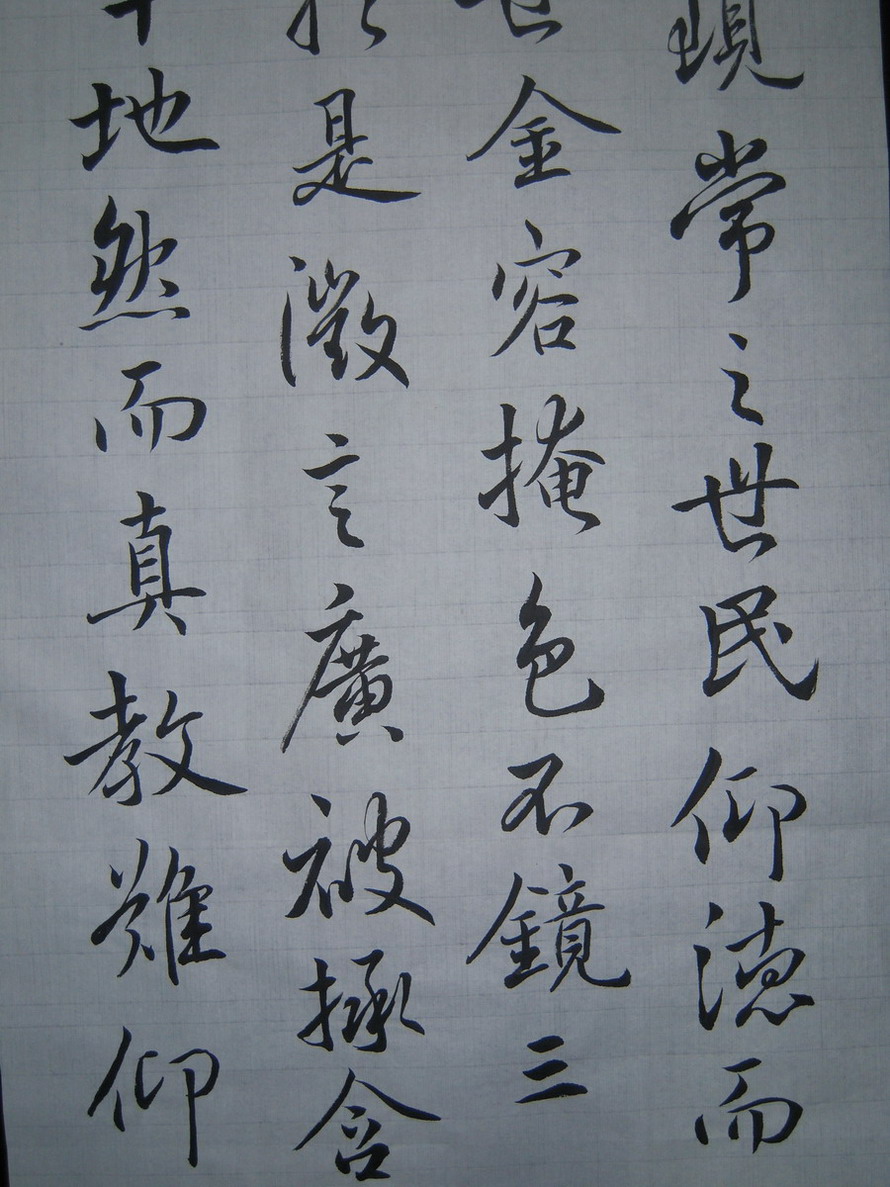 現常之世民仰德而
世金容掩色不鏡三
於是微言廣被拯含
十地然而真教難仰